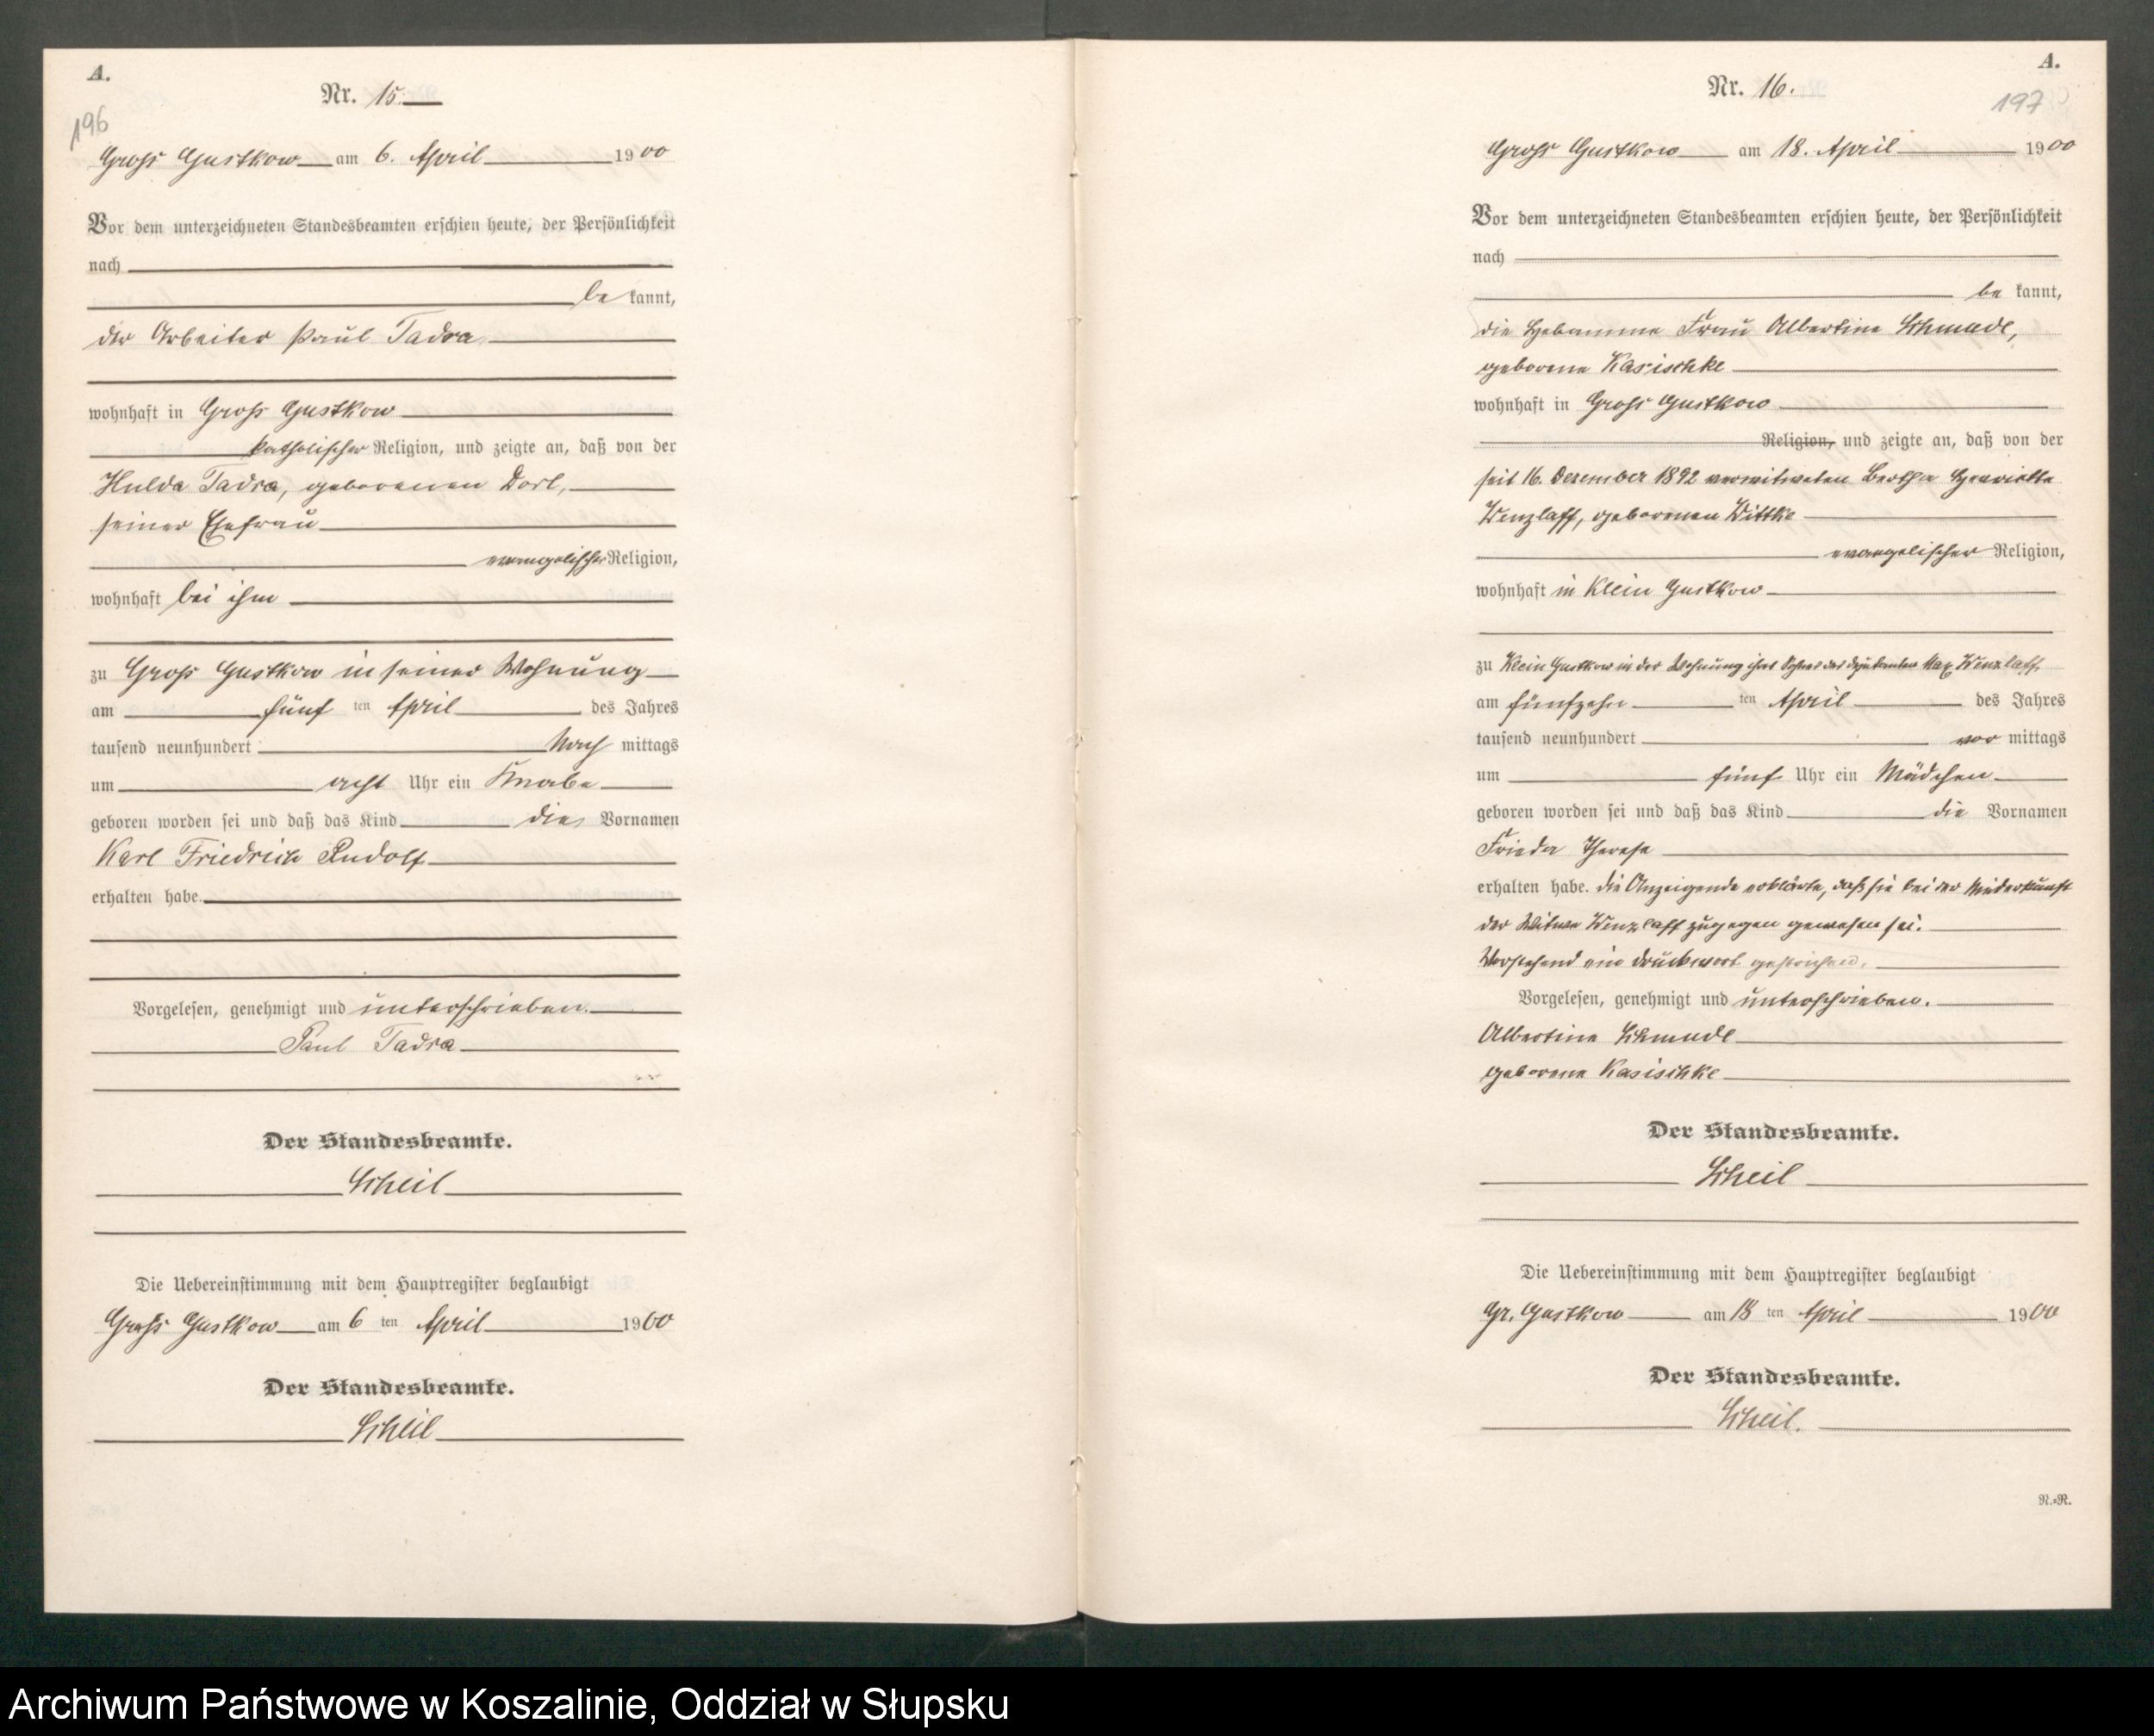 A.
Nr. 15.
196
Gross Gustkow am 6. April 1900
Vor dem unterzeichneten Standesbeamten erschien heute, der Persönlichkeit
nach
be kannt,
der Arbeiter Paul Tadra
wohnhaft in Gross Gustkow
katholischer Religion, und zeigte an, daß von der
Hulda Tadra, geborenen Dorl,
seiner Ehefrau
evangelischer Religion,
wohnhaft bei ihm
zu Gross Gustkow in seiner Wohnung
am fünf ten April des Jahres
tausend neunhundert Nach mittags
um acht Uhr ein Knabe
geboren worden sei und daß das Kind die Vornamen
Karl Friedrich Rudolf
erhalten habe.
Vorgelesen, genehmigt und unterschrieben.
Paul Tadra
Der Standesbeamte.
Scheil
Die Uebereinstimmung mit dem Hauptregister beglaubigt
Gross Gustkow am 6 ten April 1900
Der Standesbeamte.
Scheil
A.
Nr. 16.
197
Gross Gustkow am 18. April 1900
Vor dem unterzeichneten Standesbeamten erschien heute, der Persönlichkeit
nach
be kannt,
die Hebamme Frau Albertine Schmudl,
geborene Kasischke
wohnhaft in Gross Gustkow
Religion, und zeigte an, daß von der
seit 16. Dezember 1892 verwitweten Bertha Henriette
Wenzlaff, geborenen Wittke
evangelischer Religion,
wohnhaft in Klein Gustkow
zu Klein Gustkow in der Wohnung ihres Sohnes des Deputanten Max Wenzlaff
am fünfzehn ten April des Jahres
tausend neunhundert vor mittags
um fünf Uhr ein Mädchen
geboren worden sei und daß das Kind die Vornamen
Frieda Therese
erhalten habe. Die Anzeigende erklärte, daß sie bei der Niederkunft
der Witwe Wenzlaff zugegen gewesen sei.
Vorstehend ein Druckwort gestrichen.
Vorgelesen, genehmigt und unterschrieben.
Albertine Schmudl
geborene Kasischke
Der Standesbeamte.
Scheil
Die Uebereinstimmung mit dem Hauptregister beglaubigt
Gr. Gustkow am 18 ten April 1900
Der Standesbeamte.
Scheil.
N.=R.
Archiwum Państwowe w Koszalinie, Oddział w Słupsku